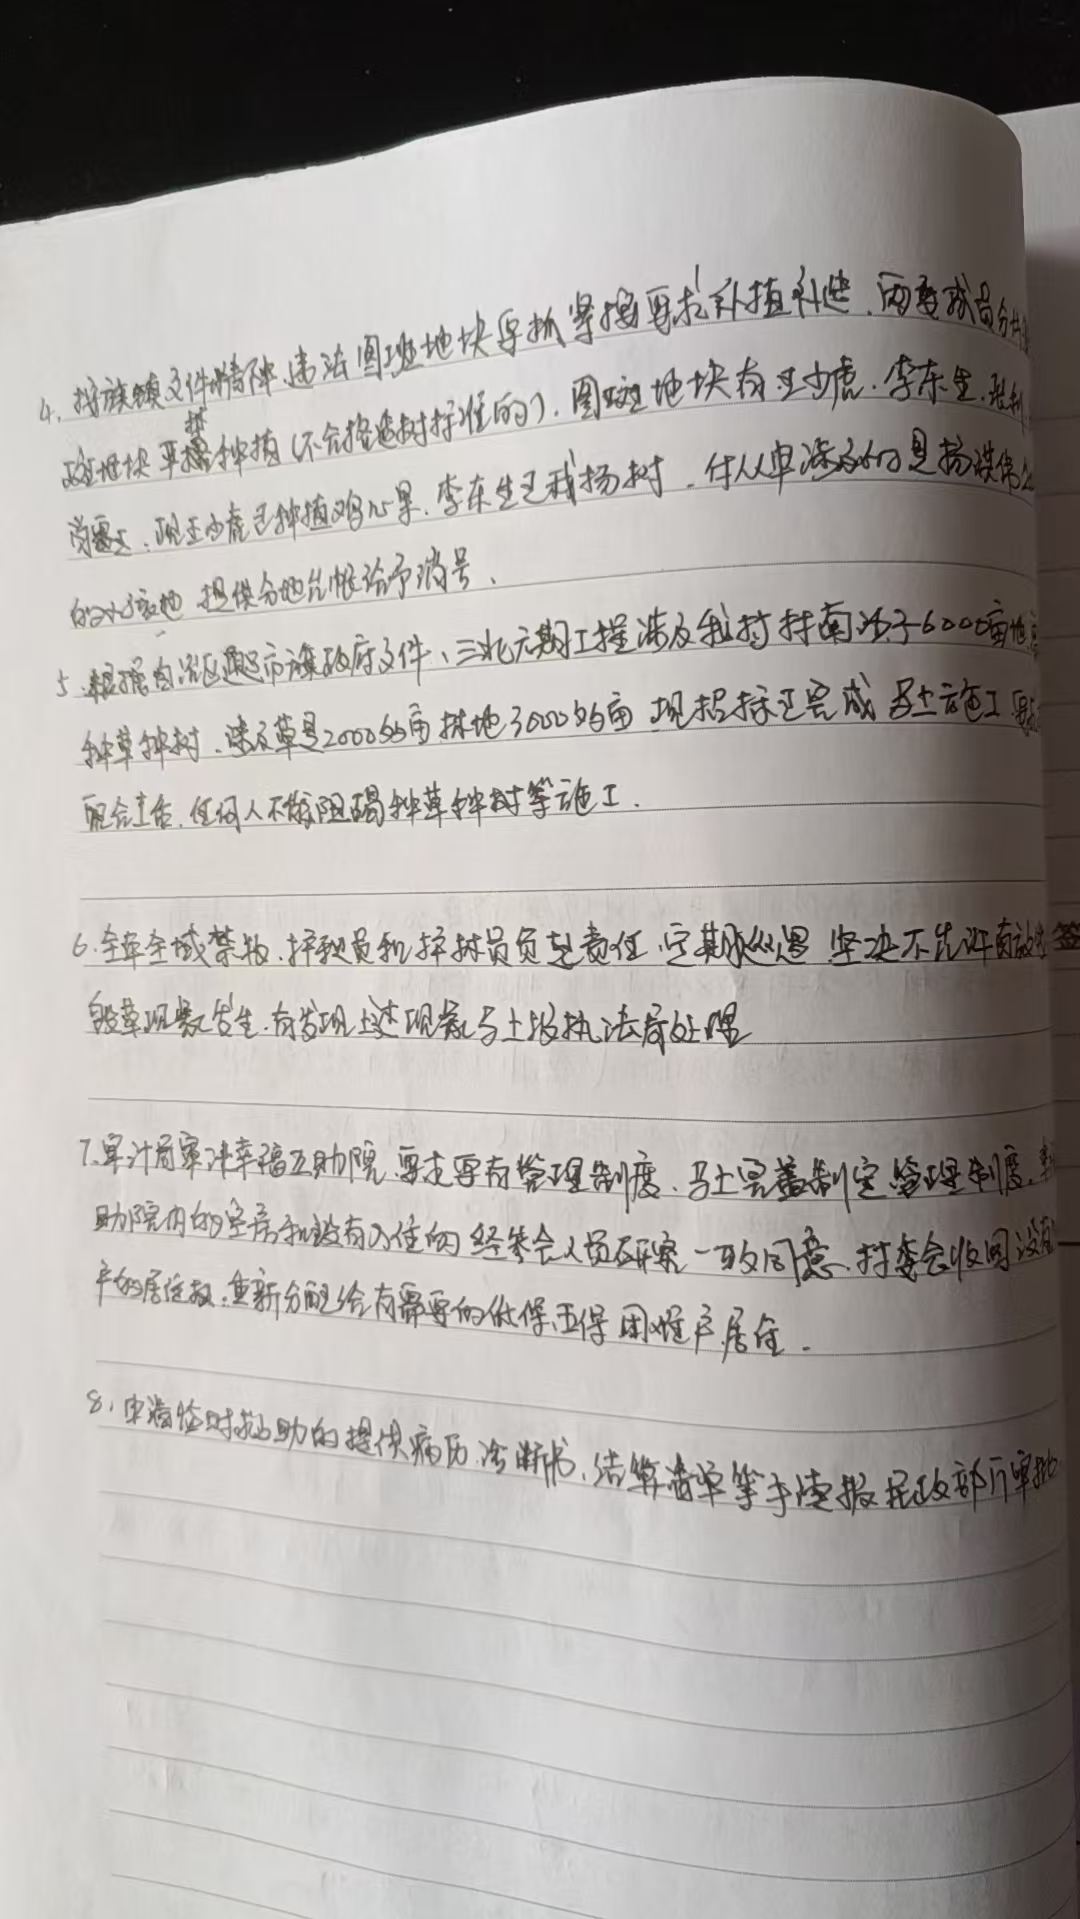 4、按旗镇文件精神、违法图斑地块要抓紧按要求补植补造、两委成员分
斑地块 严格种植(不合格造树标准的)、图斑地块有王少虎、李东生、张
、现王少虎已种植鸡心果、李东生已栽杨树、
的 地 提供分地台帐给予消号、
5、根据自治区 市旗政府文件、三北六期工程涉及我村村南沙子6000亩地
种草种树、涉及草是2000多亩 林地3000多亩 现招标已完成 马上施工
配合工作、任何人不能阻碍种草种树等施工.
6、全年全域禁牧、护秋员和护林员负起责任、定期巡逻 坚决不允许有放
毁草现象发生、有发现上述现象马上报执法局处理
7、审计局审计幸福互助院、要求要有管理制度、马上完善制定管理制度、
助院内的空房和没有入住的 经参会人员研究 一致同意、村委会收回没有
户的居住权、重新分配给有需要的低保、五保困难户居住.
8、申请临时救助的提供病历、诊断书、结算清单等手续报民政部门审批
签